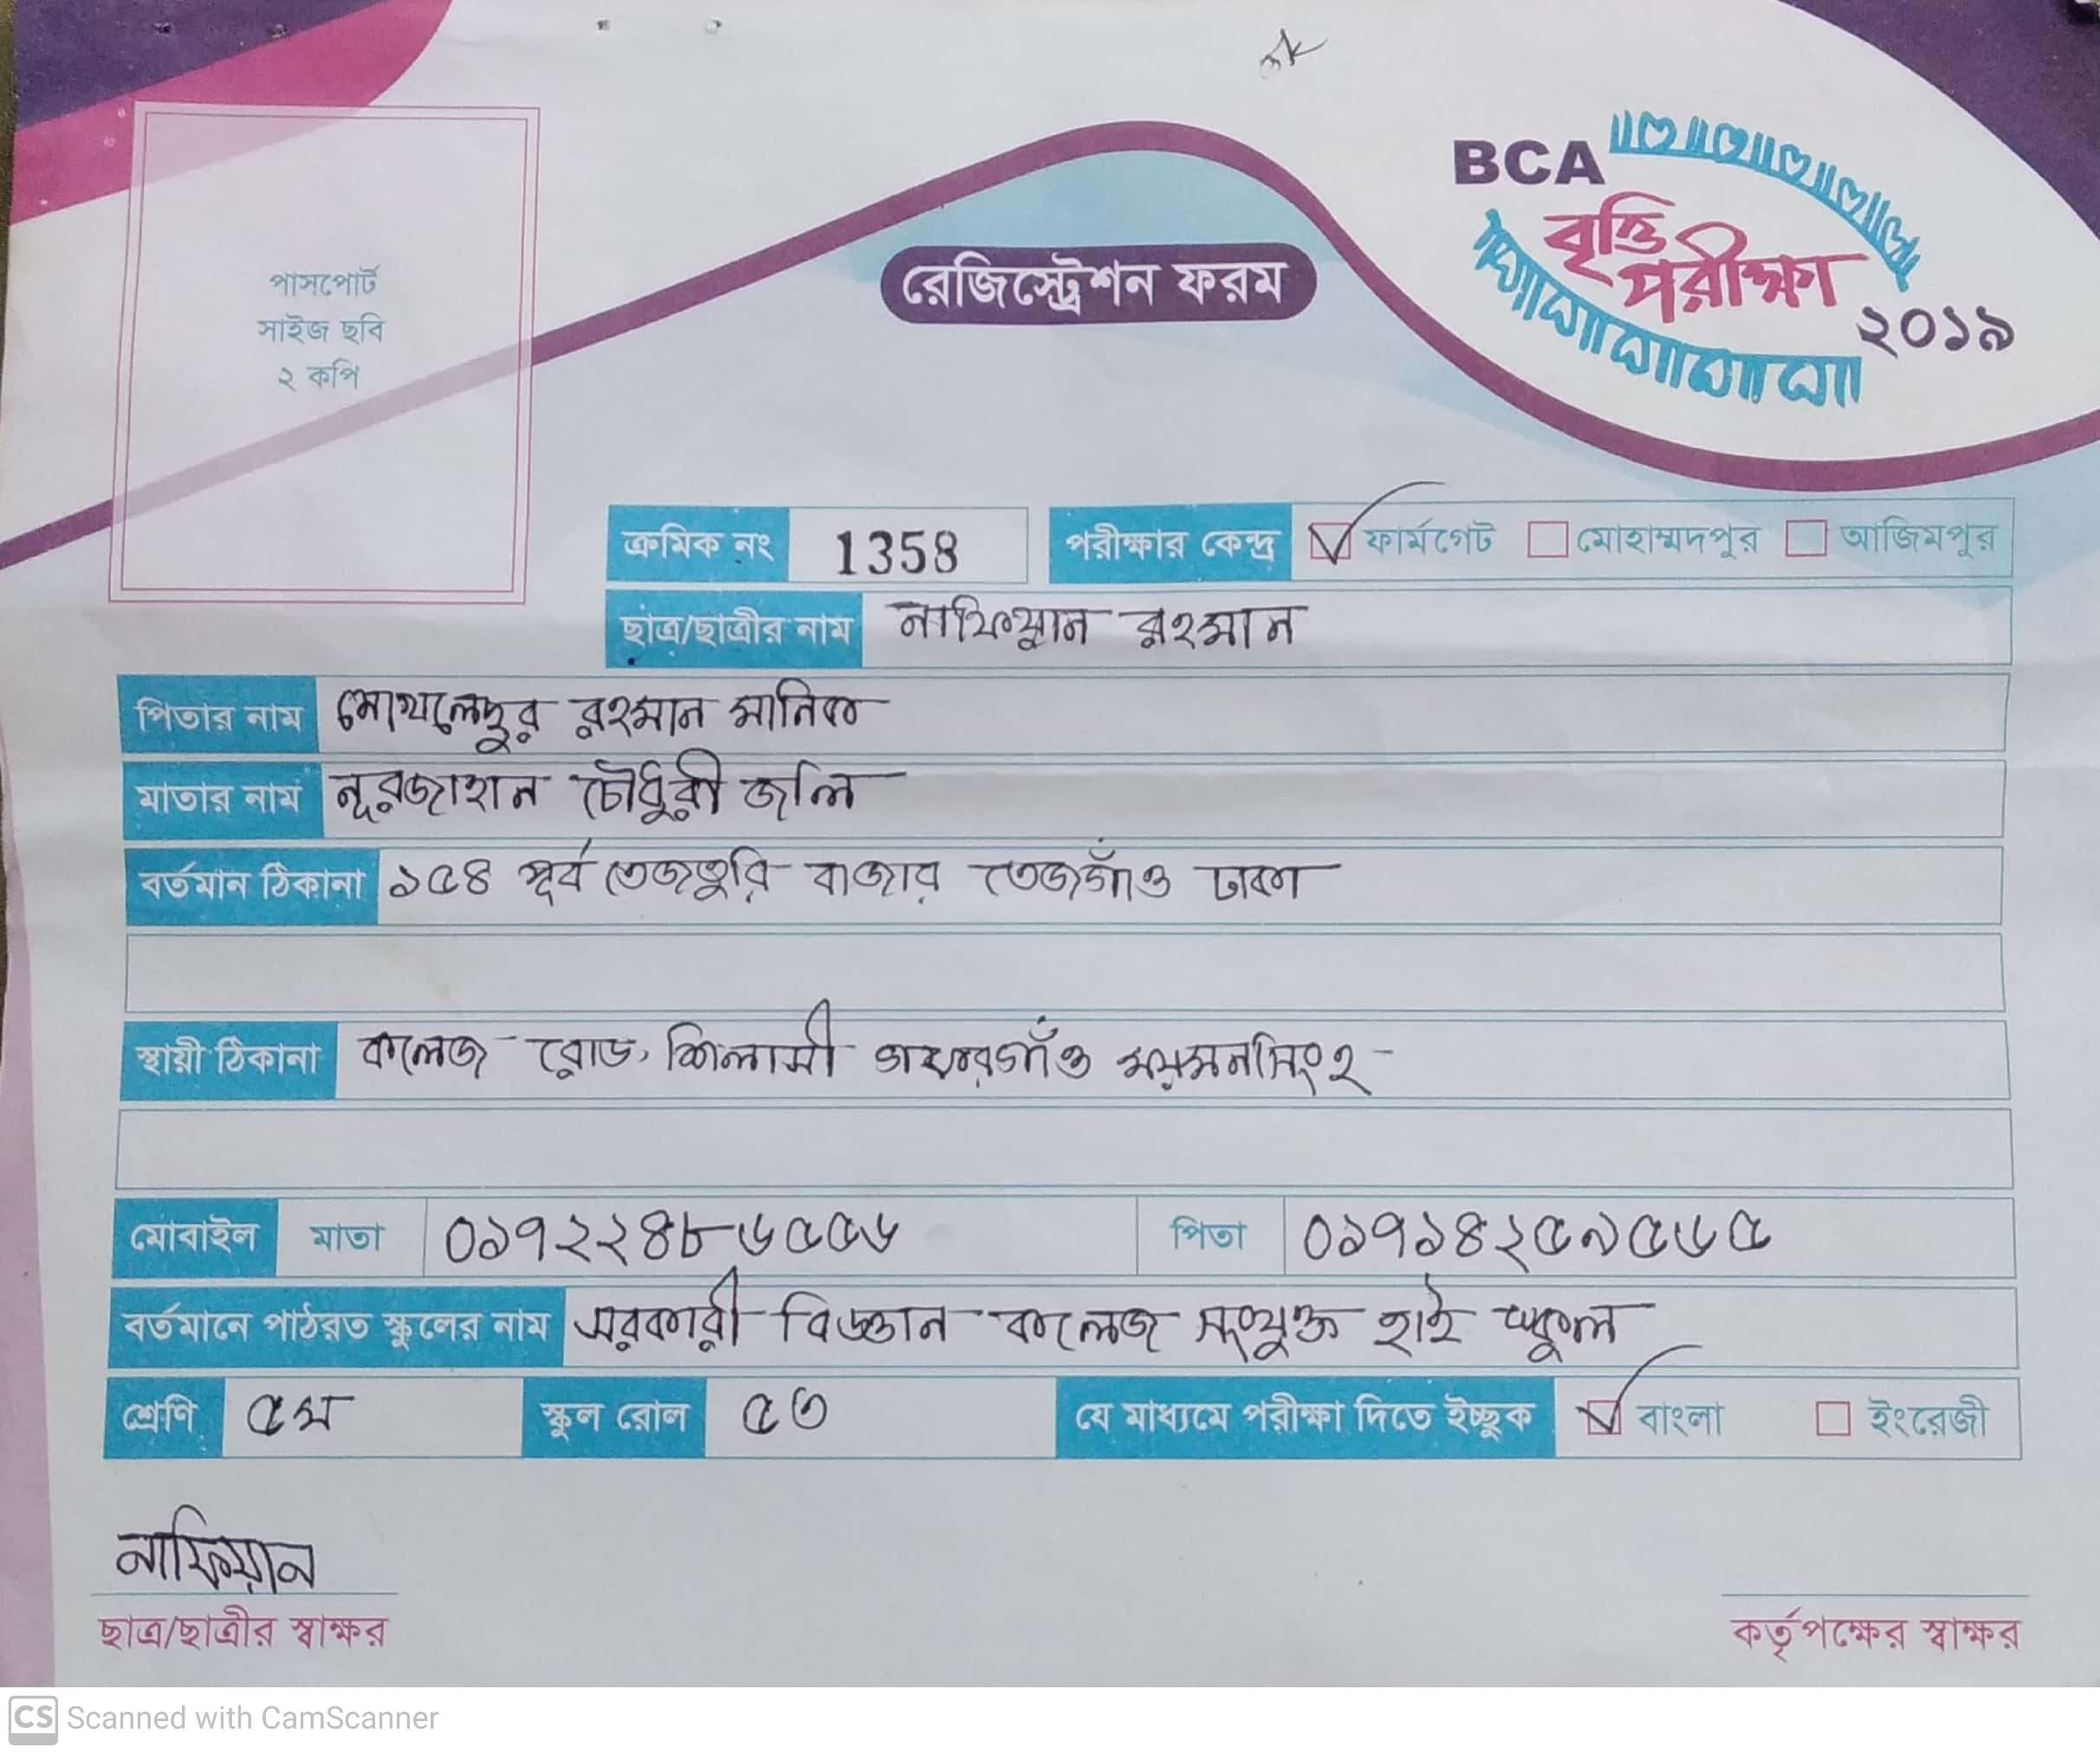 ok
BCA
বৃত্তি
পরীক্ষা
২০১৯
রেজিস্ট্রেশন ফরম
পাসপোর্ট
সাইজ ছবি
২ কপি
ক্রমিক নং 1358 পরীক্ষার কেন্দ্র ফার্মগেট মোহাম্মদপুর আজিমপুর
ছাত্র/ছাত্রীর নাম নাফিয়ান রহমান
পিতার নাম মোখলেছুর রহমান মানিক
মাতার নাম নূরজাহান চৌধুরী জলি
বর্তমান ঠিকানা ১৫৪ পূর্ব তেজতুরি বাজার তেজগাঁও ঢাকা
স্থায়ী ঠিকানা কলেজ রোড, শিলাসী গফরগাঁও ময়মনসিংহ
মোবাইল মাতা ০১৭২২৪৮৬৫৫৬ পিতা ০১৭১৪২৫৯৫৬৫
বর্তমানে পাঠরত স্কুলের নাম সরকারী বিজ্ঞান কলেজ সংযুক্ত হাই স্কুল
শ্রেণি ৫ম স্কুল রোল ৫৩ যে মাধ্যমে পরীক্ষা দিতে ইচ্ছুক বাংলা ইংরেজী
নাফিয়ান
ছাত্র/ছাত্রীর স্বাক্ষর কর্তৃপক্ষের স্বাক্ষর
CS Scanned with CamScanner